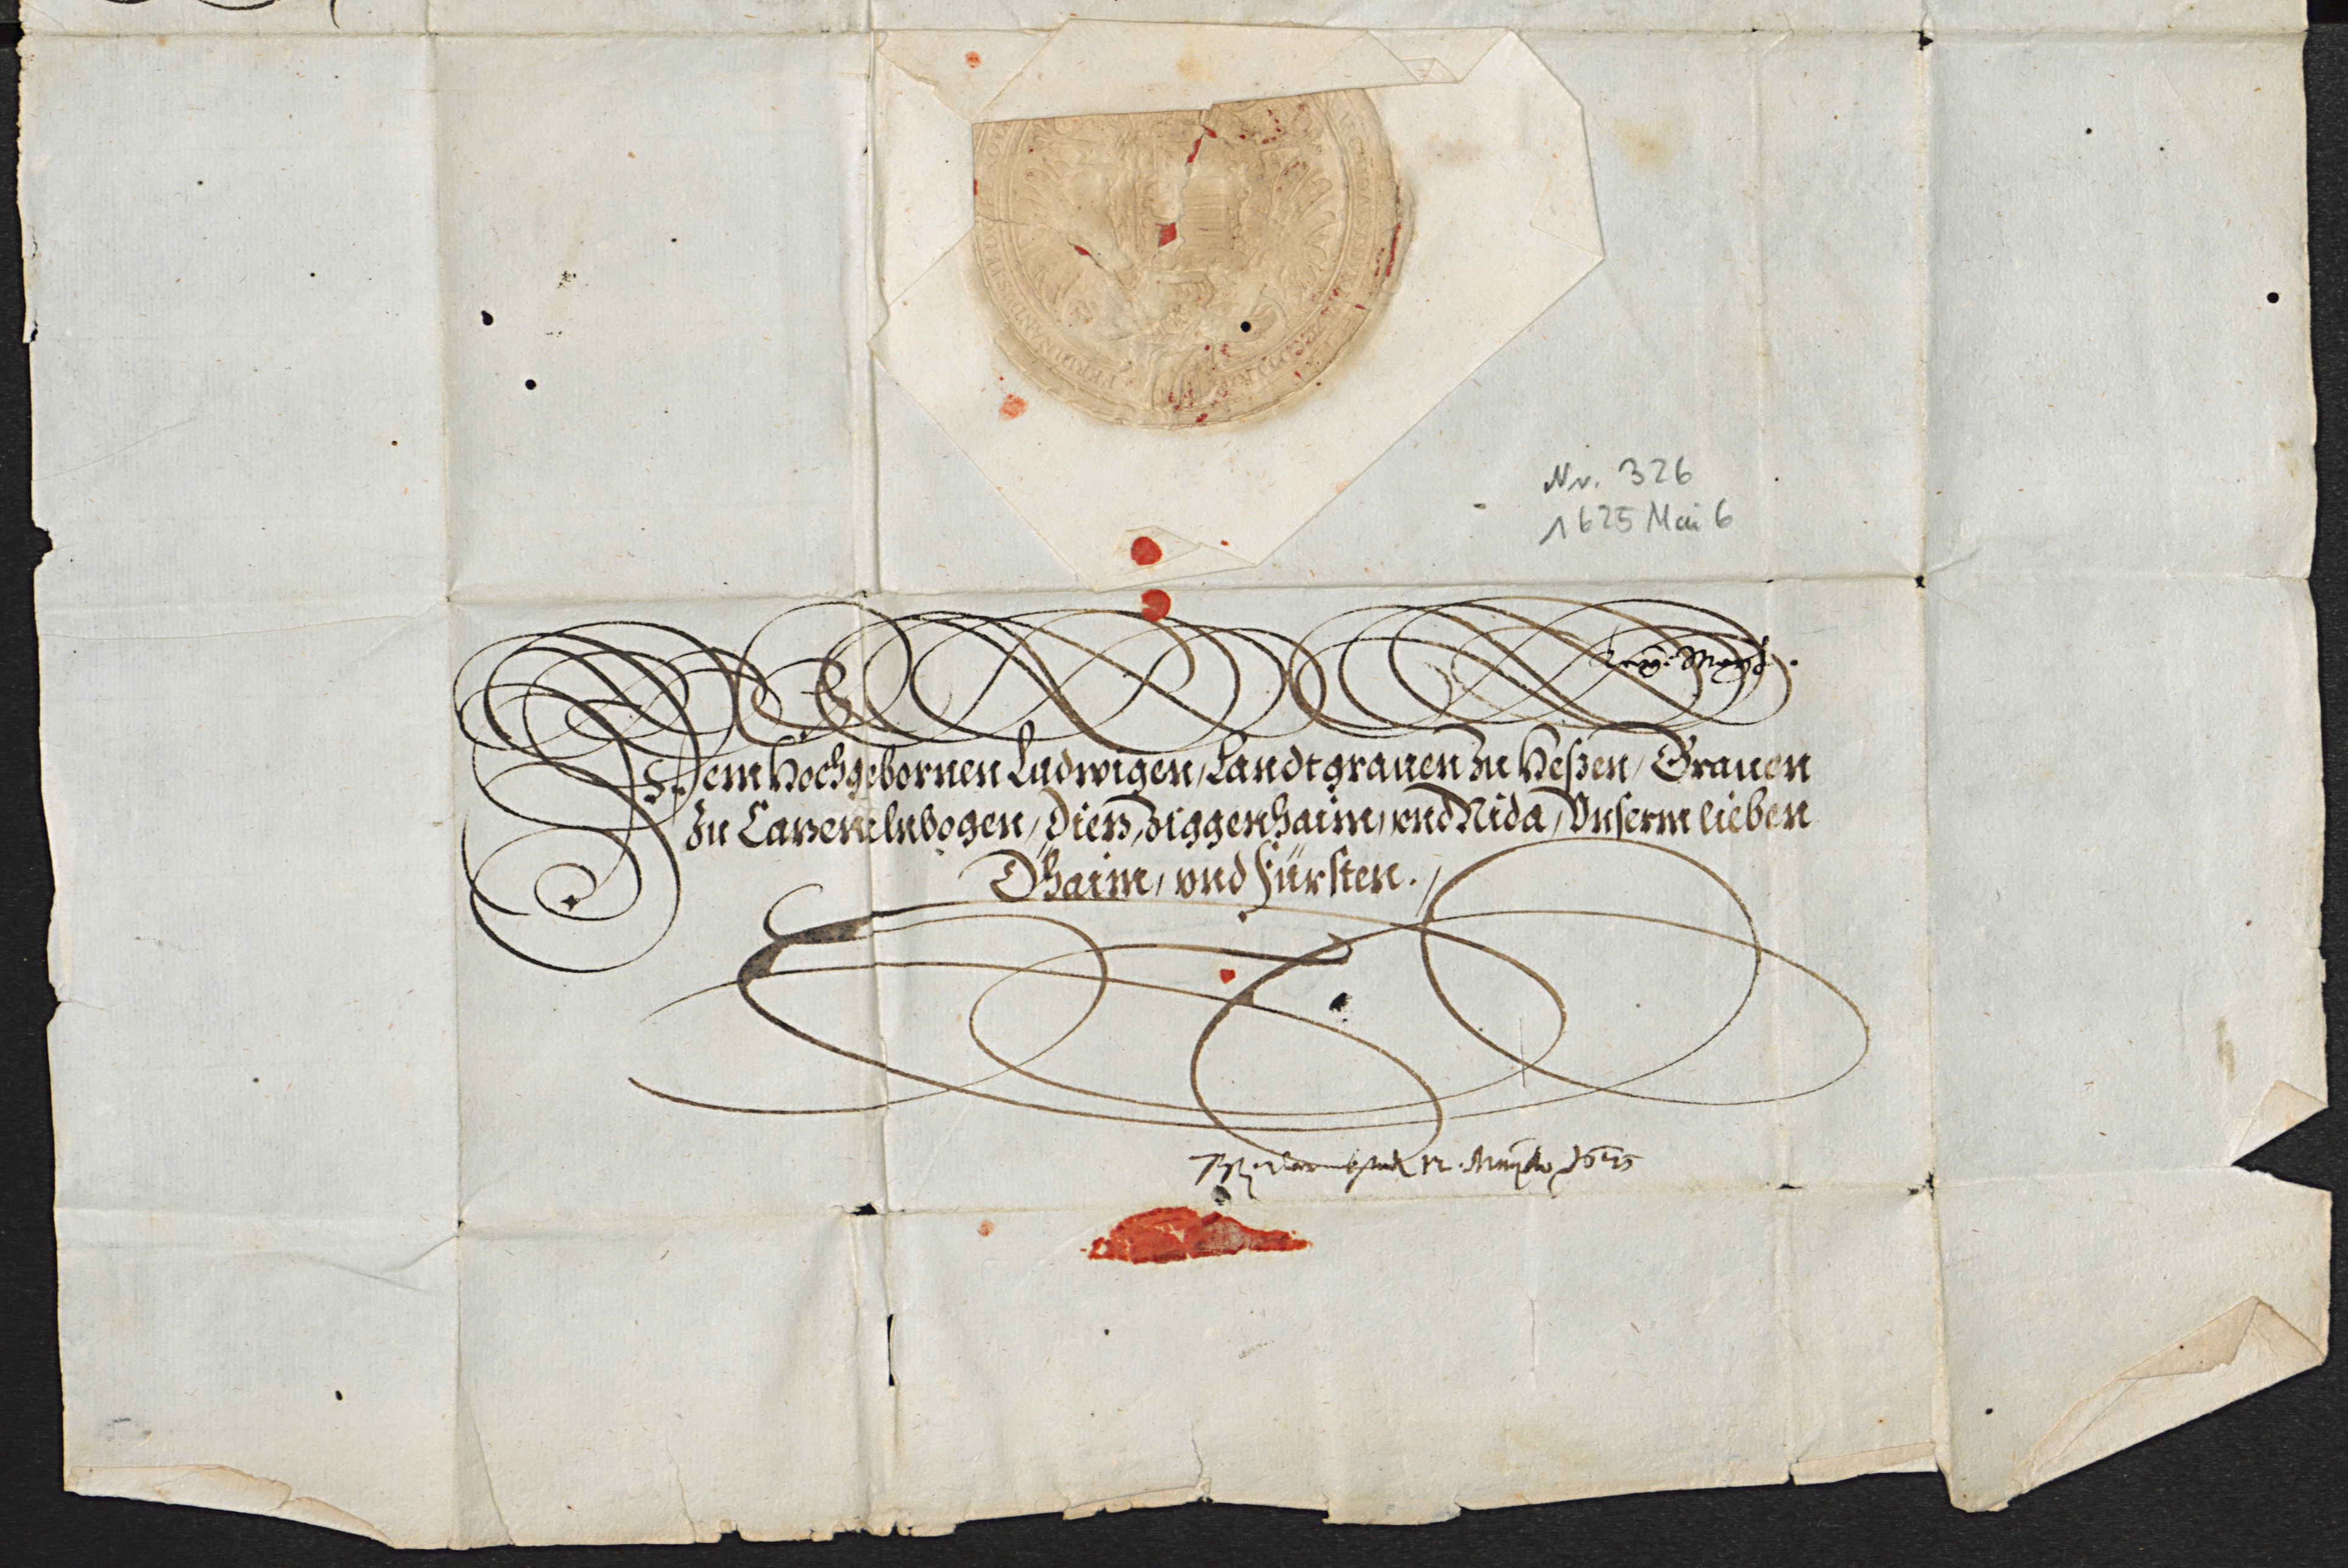 Nr. 326
1625 Mai 6
Kay: May:
Dem Hochgebornen Ludwigen, Landtgrauen zu Heßen, Grauen
zu Cazenelnbogen, Diez, Ziggenhaim, vnd Nida, Vnserm lieben
Öhaim, vnd Fürsten.
12. 1625